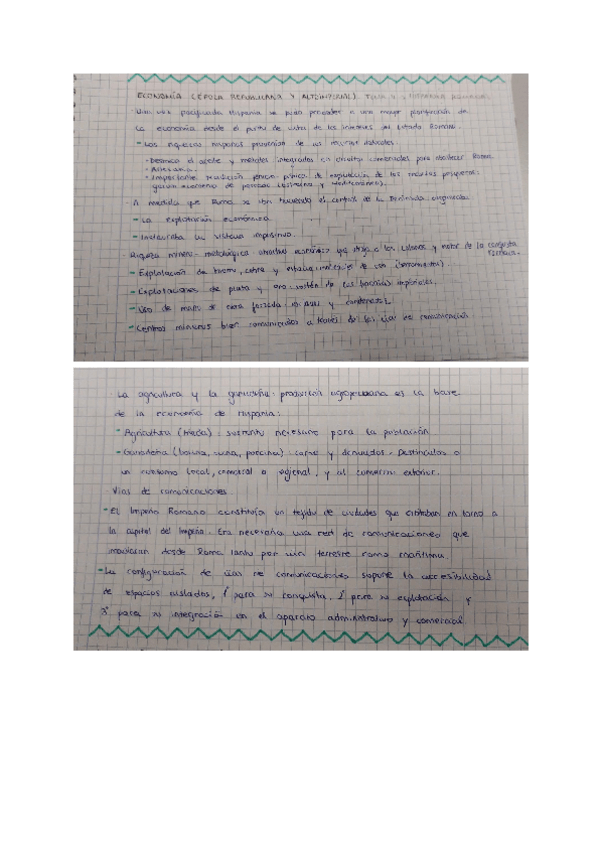 ECONOMÍA (ÉPOCA REPUBLICANA Y ALTOIMPERIAL). TEMA HISPANIA ROMANA.
· Una vez pacificada Hispania se pudo proceder a una mayor planificación de
la economía desde el punto de vista de los intereses del Estado Romano.
- Las riquezas hispanas provenían de los recursos
el aceite y metales integrados en circuitos comerciales para abastecer Roma.
- Artesanía.
- Importante tradición púnica de los recursos pesqueros:
garum
· A medida que Roma se iba haciendo el control de la Península
- La explotación económica
- Instauraba un sistema impositivo.
· Riqueza minero-metalúrgica: atractivo económico que atrajo a los y motor de la conquista
romana.
- Explotación de hierro, cobre y estaño:
- Explotaciones de plata y oro: sostén de las imperiales.
- Uso de mano de obra forzada
- Centros mineros bien comunicados a través de las vías de comunicación
· La agricultura y la ganadería: producción agropecuaria es la base
de la economía de Hispania:
- Agricultura (tríada): sustento necesario para la población
- Ganadería (bovina, ovina, porcina): carne y derivados. Destinados a
un consumo local, comarcal o regional, y al comercio exterior.
· Vías de comunicaciones.
- El Imperio Romano constituía un tejido de ciudades que orbitaban en torno a
la capital del Imperio. Era necesaria una red de comunicaciones que
desde Roma tanto por vía terrestre como marítima.
- La configuración de vías de comunicaciones supone la accesibilidad
de espacios aislados, 1º para su conquista, 2º para su explotación y
3º para su integración en el aparato administrativo y comercial.